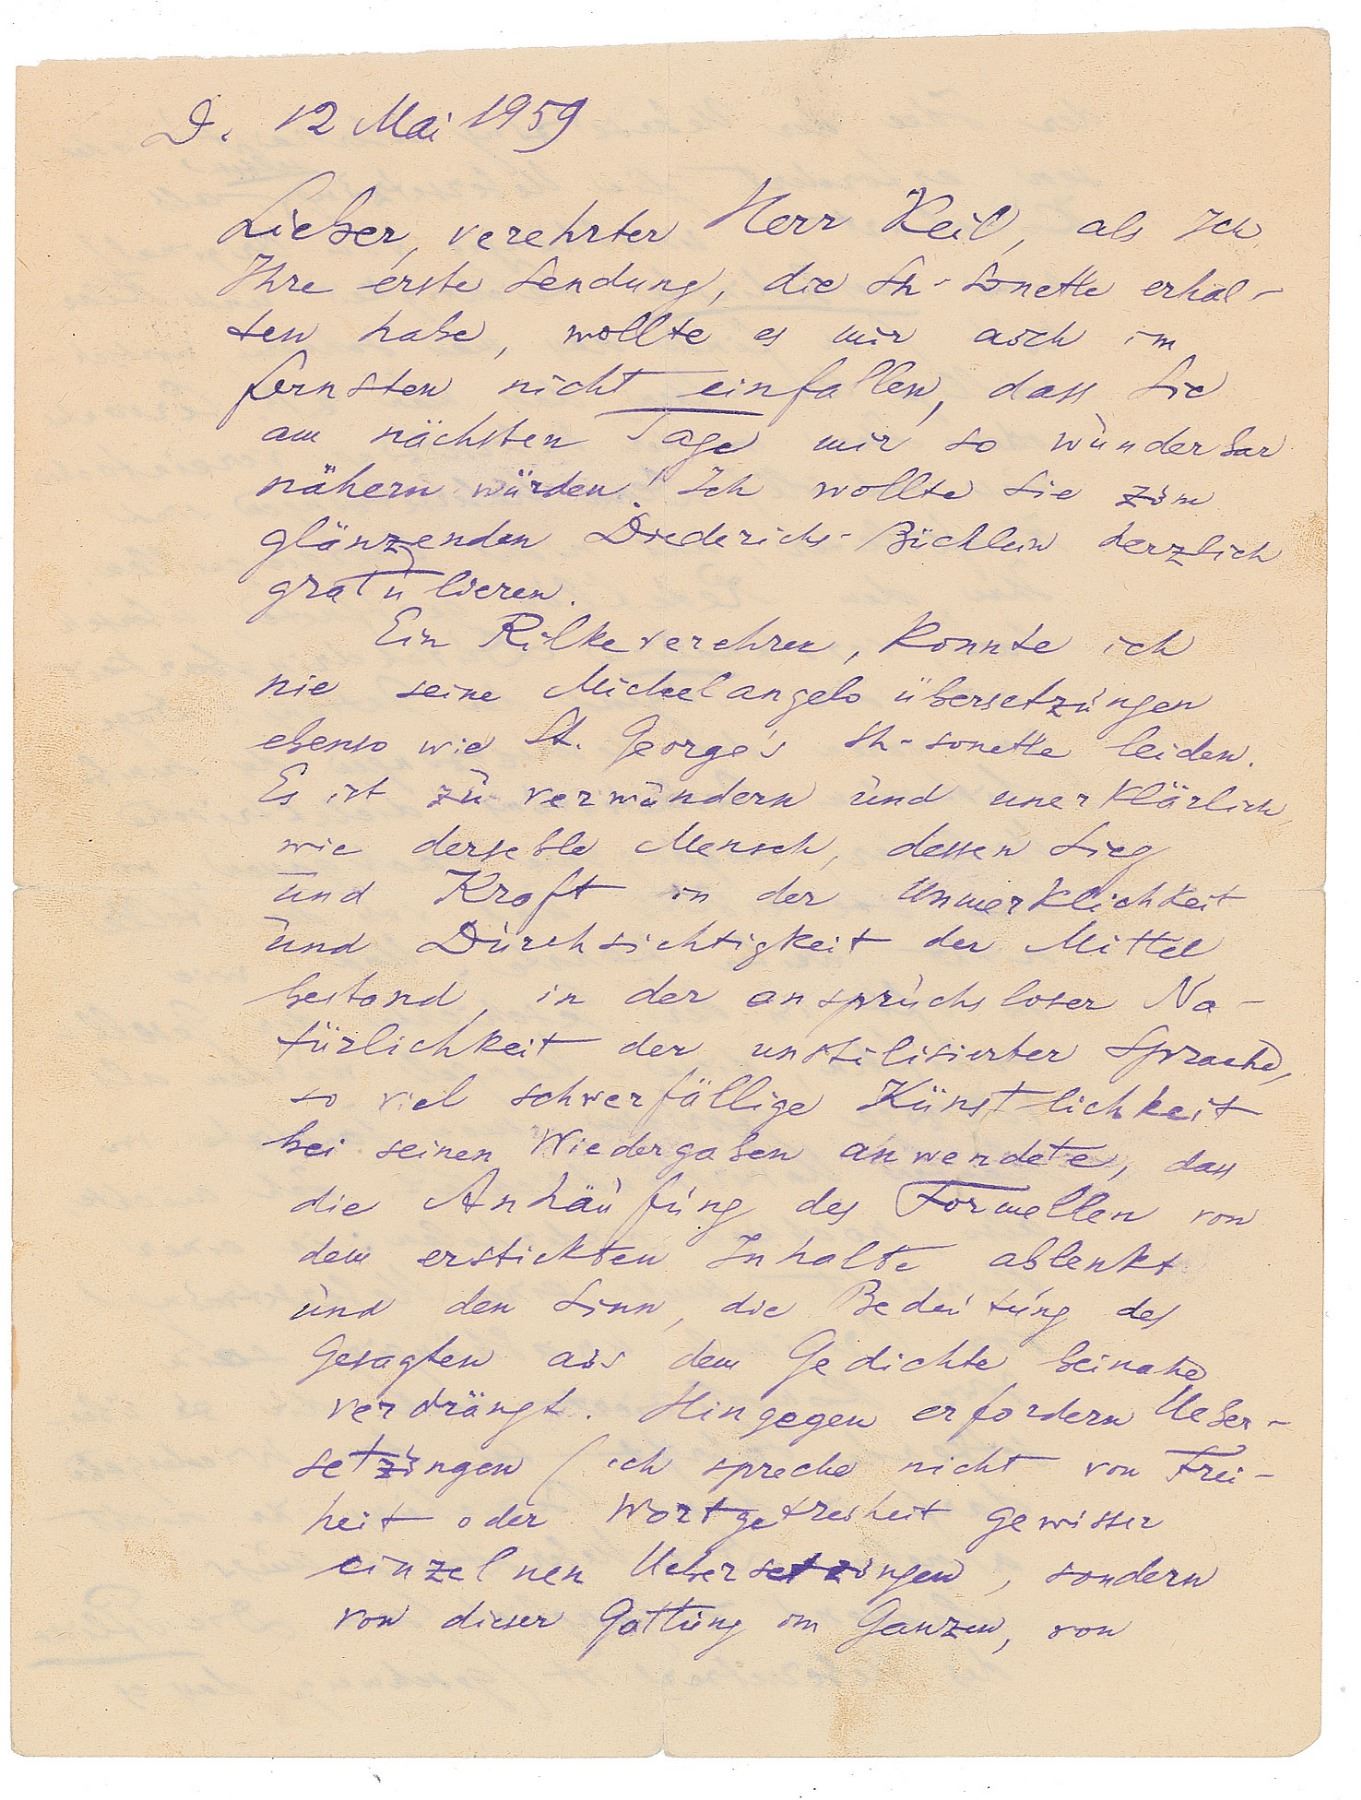 D. 12 Mai 1959
Lieber, verehrter Herr Keil, als Ich
Ihre erste Sendung, die Sh-Sonette erhal-
ten habe, wollte es mir auch im
fernsten nicht einfallen, dass Sie
am nächsten Tage mir so wunderbar
nähern würden! Ich wollte Sie zum
glänzenden Diederichs-Büchlein herzlich
gratulieren.
Ein Rilkeverehrer, konnte ich
nie seine Michelangelo übersetzungen
ebenso wie St. George's Sh-sonette leiden.
Es ist zu verwundern und unerklärlich,
wie derselble Mensch, dessen Sieg
und Kraft in der Unmerklichkeit
und Durchsichtigkeit der Mittel
bestand, in der anspruchsloser Na-
türlichkeit der unstilisierter Sprache,
so viel schwerfällige Künstlichkeit
bei seinen Wiedergaben anwendete, dass
die Anhäufung des Formellen von
dem erstickten Inhalte ablenkt
und den Sinn, die Bedeutung des
Gesagten aus dem Gedichte beinahe
verdrängt. Hingegen erfordern Ueber-
setzungen (ich spreche nicht von Frei-
heit oder Wortgetreuheit gewisser
einzelnen Uebersetzungen, sondern
von dieser Gattung im Ganzen, von